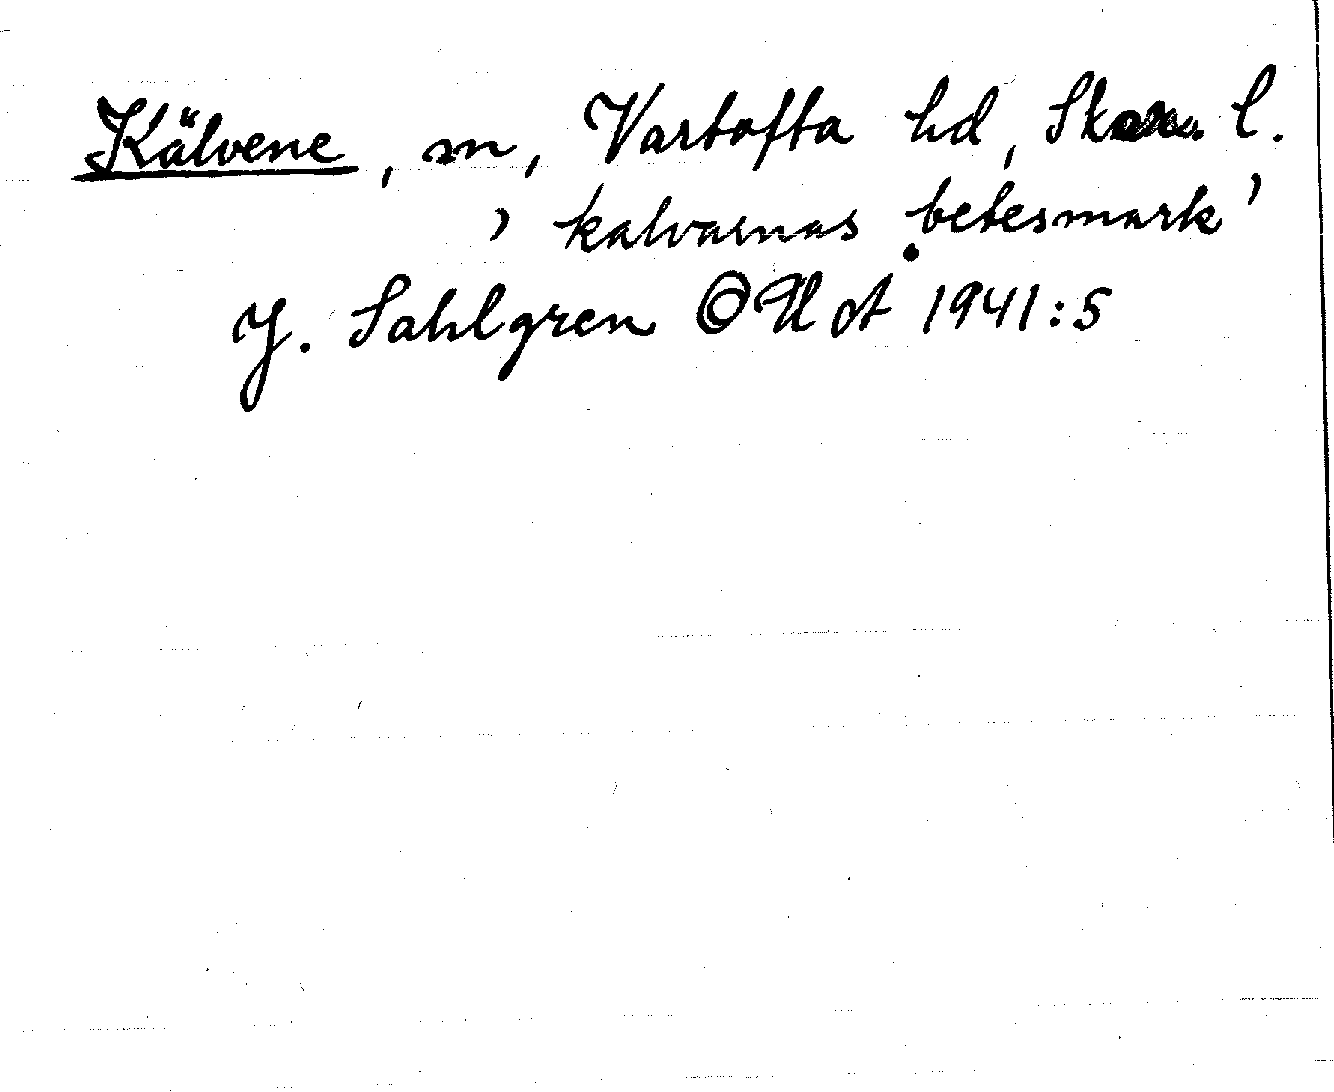 Kälvene, sn, Vartofta hd, Skara l.
'kalvarnas betesmark'
J. Sahlgren ÖUoA 1941:5